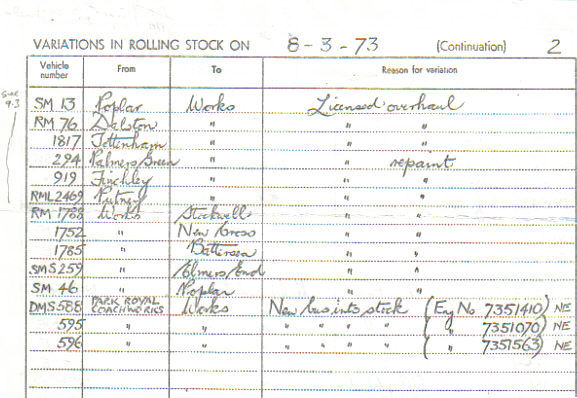 VARIATIONS IN ROLLING STOCK ON 8-3-73 (Continuation) 2
Vehicle number From To Reason for variation
SM 13 Poplar Works Licensed overhaul
RM 76 Dalston " " "
1817 Tottenham " " "
294 Palmers Green " " repaint
919 Finchley " " "
RML 2469 Putney " " "
RM 1788 Works Stockwell " "
1752 " New Cross " "
1785 " Battersea " "
SMS 259 " Elmers End " "
SM 46 " Poplar " "
DMS 588 PARK ROYAL COACHWORKS Works New bus into stock (Eng No 7351410) NE
595 " " " " " " ( " 7351070) NE
596 " " " " " " ( " 7351563) NE